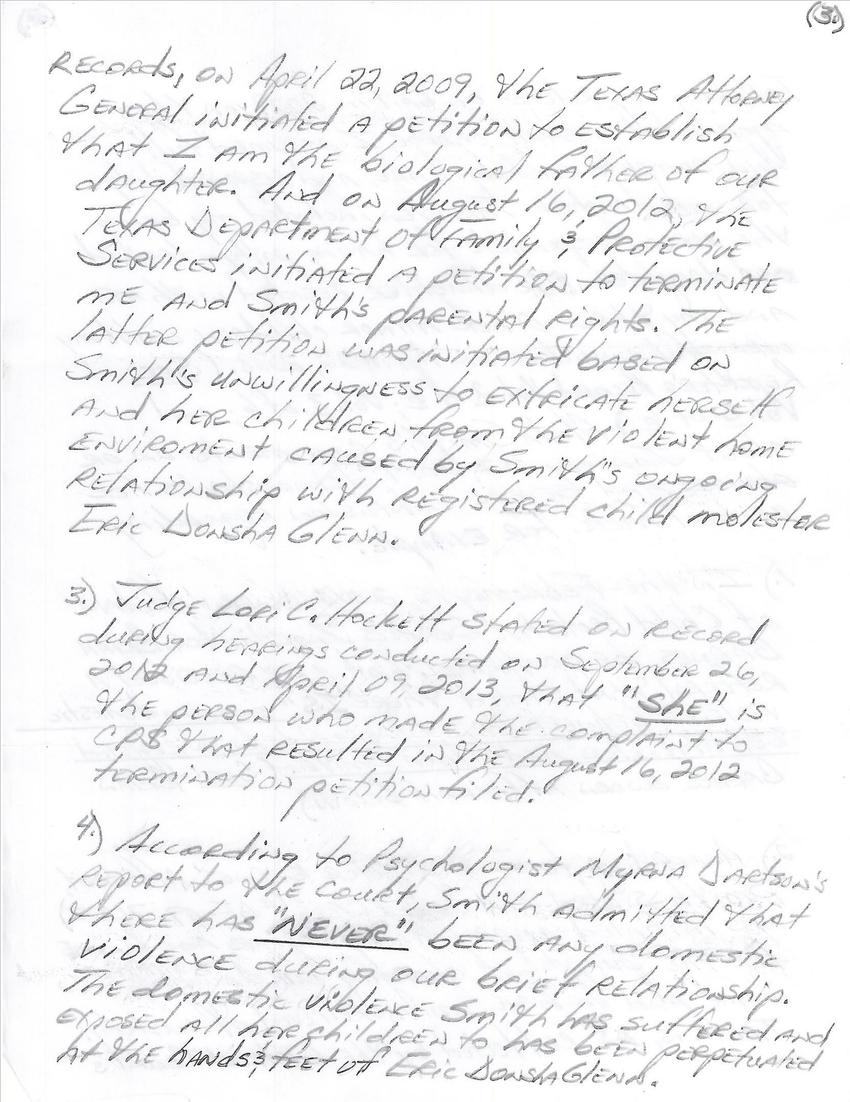 (3.)
RECORDS, ON April 22, 2009, the TEXAS Attorney
GENERAL initiated A petition to EStablish
that I AM the biological father of our
daughter. And on August 16, 2012, the
TEXAS DEPARTMENT of Family & PROTECTIVE
SERVICES initiated A petition to terminate
ME AND Smith's PARENTAL Rights. The
latter petition was initiated based on
Smith's unwillingness to extricate herself
And her children from the violent home
ENVIROMENT caused by Smith's ongoing
Relationship with registered child molester
ERIC DONSHA GLENN.
3.) Judge Lori C. Hockett Stated on record
during hearings conducted on September 26,
2012 and April 09, 2013, that "SHE" is
the person who made the complaint to
CPS that resulted in the August 16, 2012
termination petition filed.
4.) According to Psychologist Myrna Dartson's
report to the court, Smith admitted that
there has "NEVER" been any domestic
violence during our brief relationship.
The domestic violence Smith has suffered and
exposed all her children to has been perpetuated
at the hands & feet of Eric Donsha Glenn.